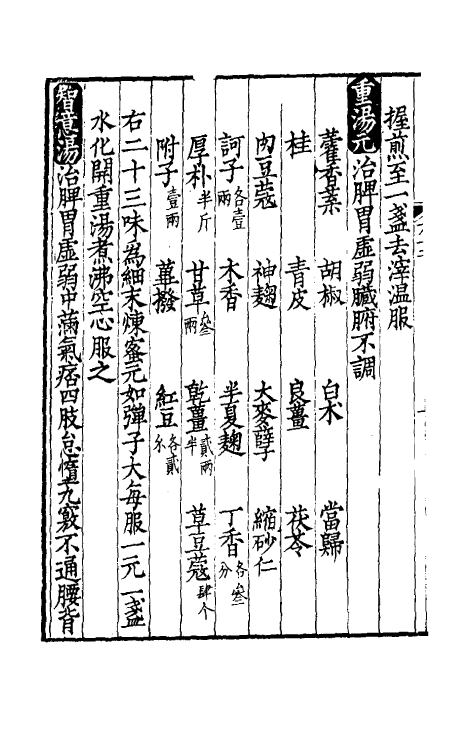 握煎至一盞去滓温服
重湯元治脾胃虛弱臟腑不調
藿香葉 胡椒 白术 當歸
桂 青皮 良薑 茯苓
肉豆蔻 神麹 大麥蘖子 縮砂仁
訶子各壹兩 木香 半夏麹 丁香各叁分
厚朴半斤 甘草叁兩 乾薑貳兩半 草豆蔻肆个
附子壹兩 蓽撥 紅豆各貳分
右二十三味爲細末煉蜜元如彈子大每服一元一盞
水化開重湯煮沸空心服之
智意湯治脾胃虛弱中滿氣痞四肢怠惰九竅不通腰背